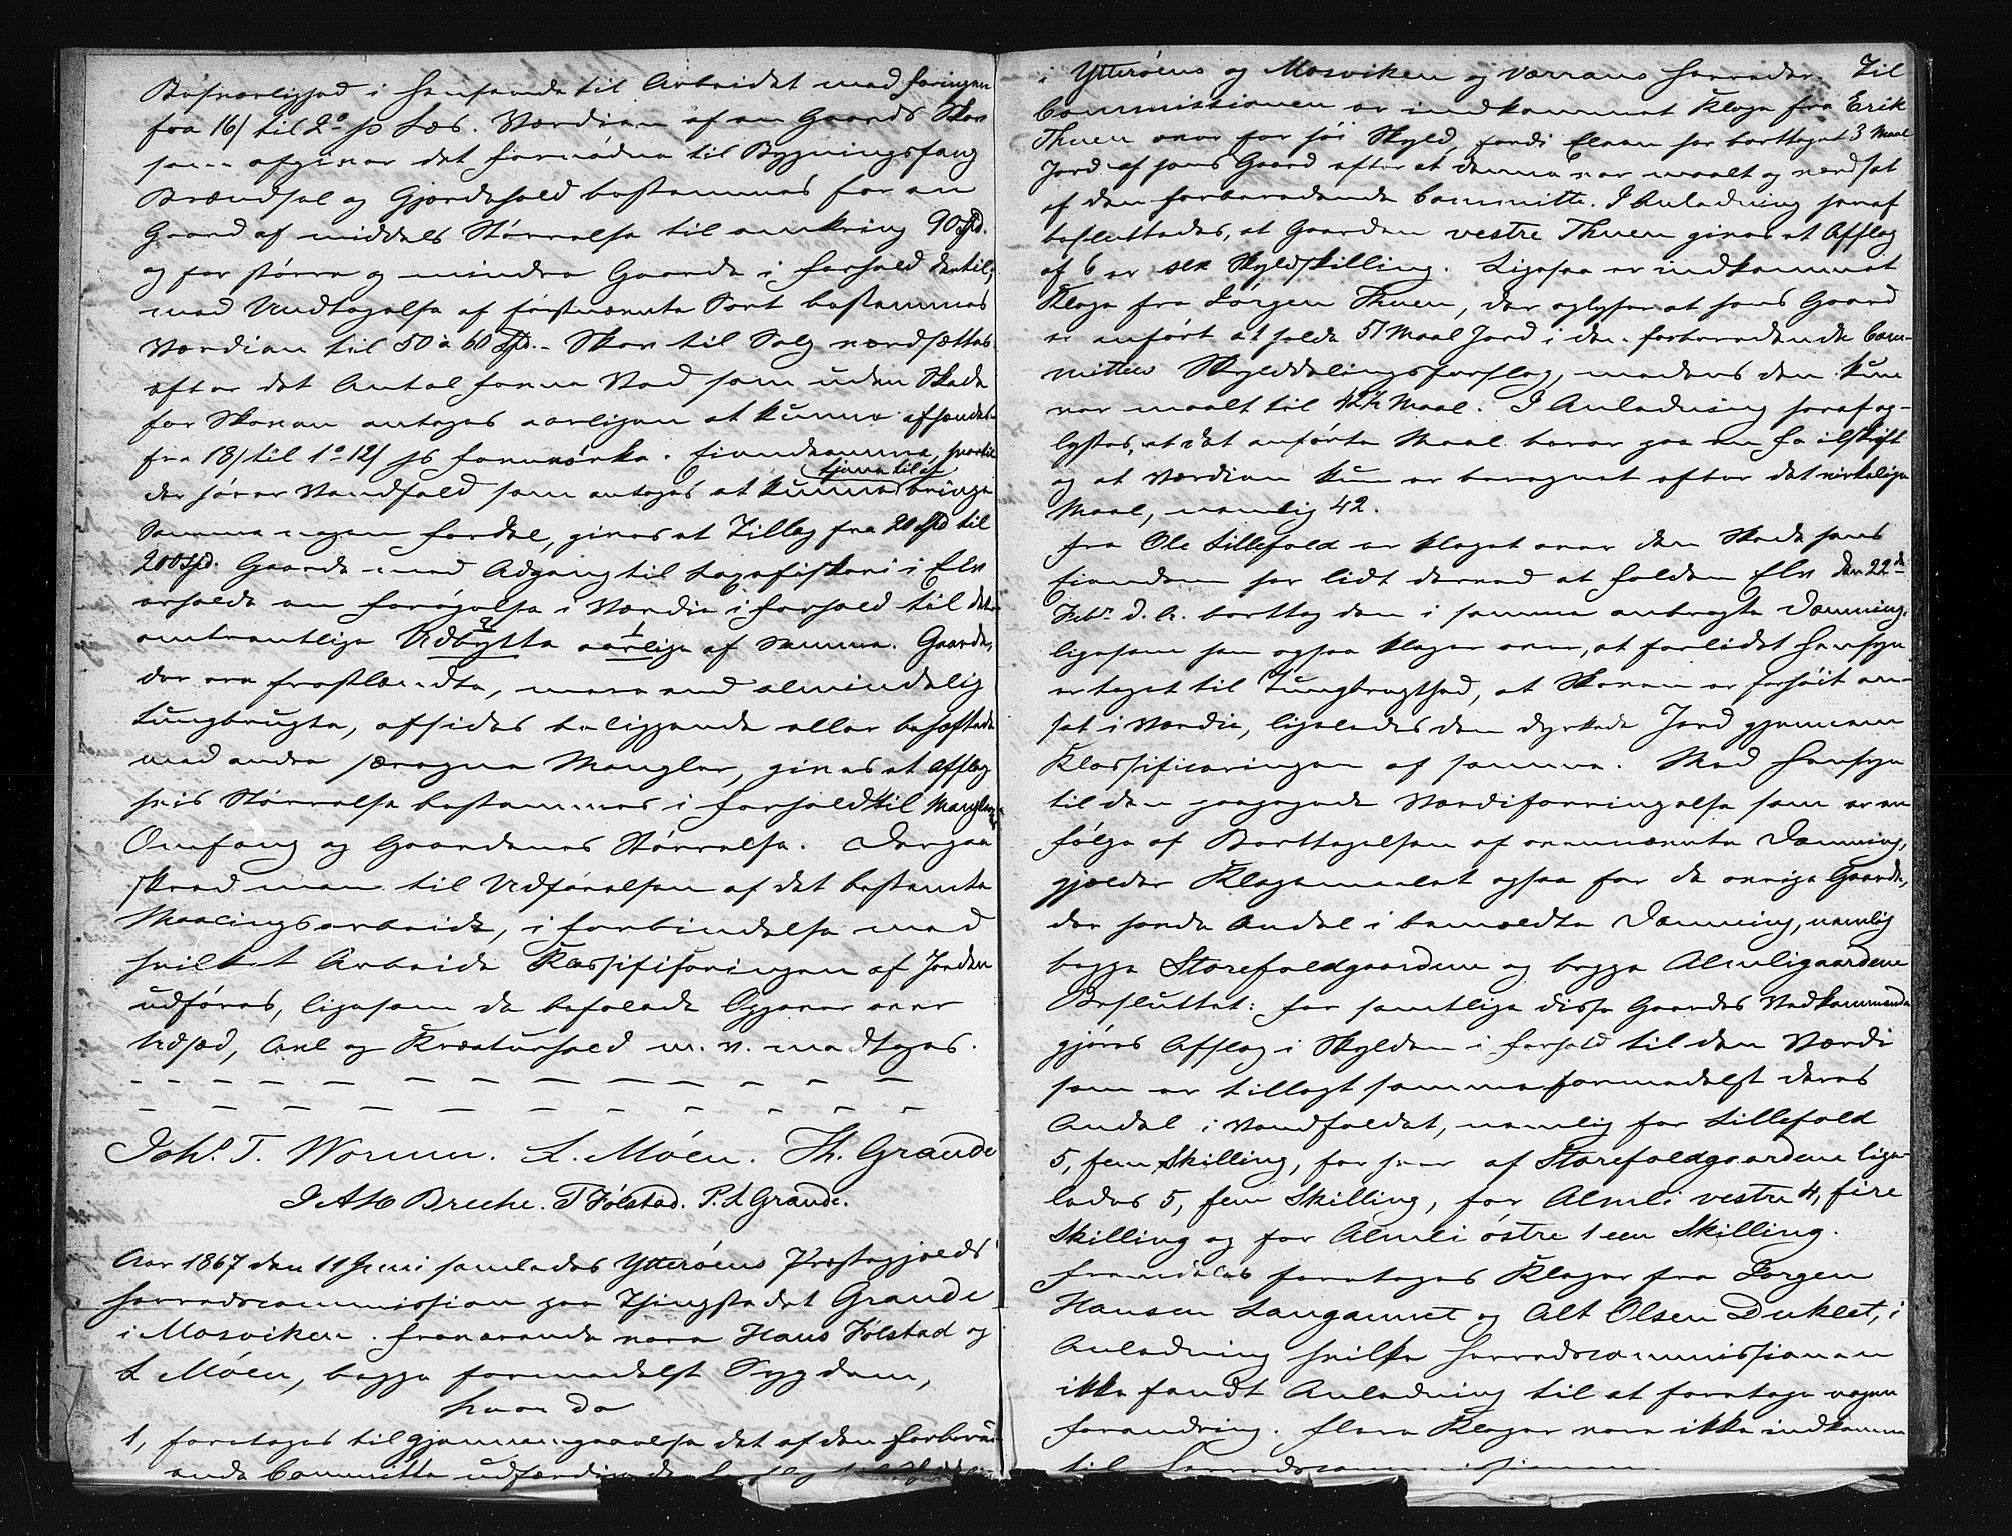 Besværlighed i Henseende til Arbeidet med Høringen
fra 16/ til 2° ps Læs. Værdien af en Gaards Skov
som afgiver det fornødne til Bygningsfang
Brændsel og Gjærdehold bestemmes for en
Gaard af middels Størrelse til omkring 90 Spd.
og for større og mindre Gaarde i Forhold dertil,
med Undtagelse af førstnævnte Sort bestemmes
Værdien til 50 à 60 Spd. - Skov til Salg værdsættes
efter det Antal Favne Ved som uden Skade
for Skoven antages aarligen at kunne afhændes
fra 18/ til 1° 12/ ps Favn Birke. Eiendomme, hvortil
der hører Vandfald som antages at kunne (tjene til at) bringe
Samme nogen Fordel, gives et Tillæg fra 20 Spd til
200 Spd. Gaarde med Adgang til Laxefiskeri i Elv
erholde en Forøgelse i Værdie i Forhold til det
omtrentlige Udbytte aarlige af Samme. Gaarde,
der ere frostlændte, mere end almindelig
tungbrugte, afsides beliggende eller beheftede
med andre særegne Mangler, gives et Afslag
hvis Størrelse bestemmes i Forhold til Manglernes
Omfang og Gaardenes Størrelse. Derpaa
skred man til Udførelsen af det bestemte
Maalingsarbeide, i Forbindelse med
hvilket Arbeide Klassificeringen af Jorden
udføres, ligesom de befalede Opgaver over
Udsæd, Avl og Kreaturhold m. v. modtoges.
Joh. T. Worum. L. Móen. Th. Grande
J. A. H Breche. T Følstad. P. L Grande.
Aar 1867 den 11 Juni samledes Ytterøens Præstegjelds
Herredscommission paa Thingstedet Grande
i Mosviken. Fraværende vare Hans Følstad og
L Móen, begge formedelst Sygdom,
hvor da
1, foretoges til Gjennemgaaelse det af den forbered-
ende Committe udfærdigede Forslag til Skyld
i Ytterøens og Mosviken og Værrans Herreder. Til
Commissionen er indkommet Klage fra Erik
Thuen over for høi Skyld, fordi Elven har borttaget 3 Maal
Jord af hans Gaard efter at denne var maalt og værdsat
af den forberedende Committe. I Anledning heraf
besluttedes, at Gaarden vestre Thuen gives et Afslag
af 6 er sex Skyldskilling. Ligesaa er indkommet
Klage fra Jørgen Thuen, der oplyser at hans Gaard
er anført at holde 51 Maal Jord i den forberedende Com-
mittees Skylddelingsforslag, medens den kun
var maalt til 42½ Maal. I Anledning heraf op-
lystes, at det anførte Maal beror paa en Feilskrift
og at Værdien kun er beregnet efter det virkelige
Maal, nemlig 42.
Fra Ole Lillefold er klaget over den Skade hans
Eiendom har lidt derved at Folden Elv den 22de
Febr. d. A. borttog den i samme anbragte Dæmning,
ligesom han ogsaa klager over, at forlidet Hensyn
er taget til Tungbrugthed, at Skoven er forhøit an-
sat i Værdie, ligeledes den dyrkede Jord gjennem
Klassificeringen af samme. Med Hensyn
til den paagagede Værdiforringelse som er en
Følge af Borttagelsen af ovennævnte Dæmning,
gjælder Klagemaalet ogsaa for de øvrige Gaarde,
der havde Andel i bemeldte Dæmning, nemlig
begge Storefoldgaardene og begge Almligaardene
Besluttet: For samtlige disse Gaardes Vedkommende
gjøres Afslag i Skylden i Forhold til den Værdi
som er tillagt samme formedelst deres
Andel i Vandfaldet, nemlig for Lillefold
5, fem Skilling, for hver af Storefoldgaardene lige-
ledes 5, fem Skilling, for Almli vestre 4, fire
Skilling og for Almli østre 1 een Skilling.
Fremdeles foretoges Klager fra Jørgen
Hansen Langamnet og Alt Olsen Duklet, i
Anledning hvilke Herredscommissionen
ikke fandt Anledning til at foretage nogen
Forandring. Flere Klager vare ikke indkomne
til Herredscommissionen.